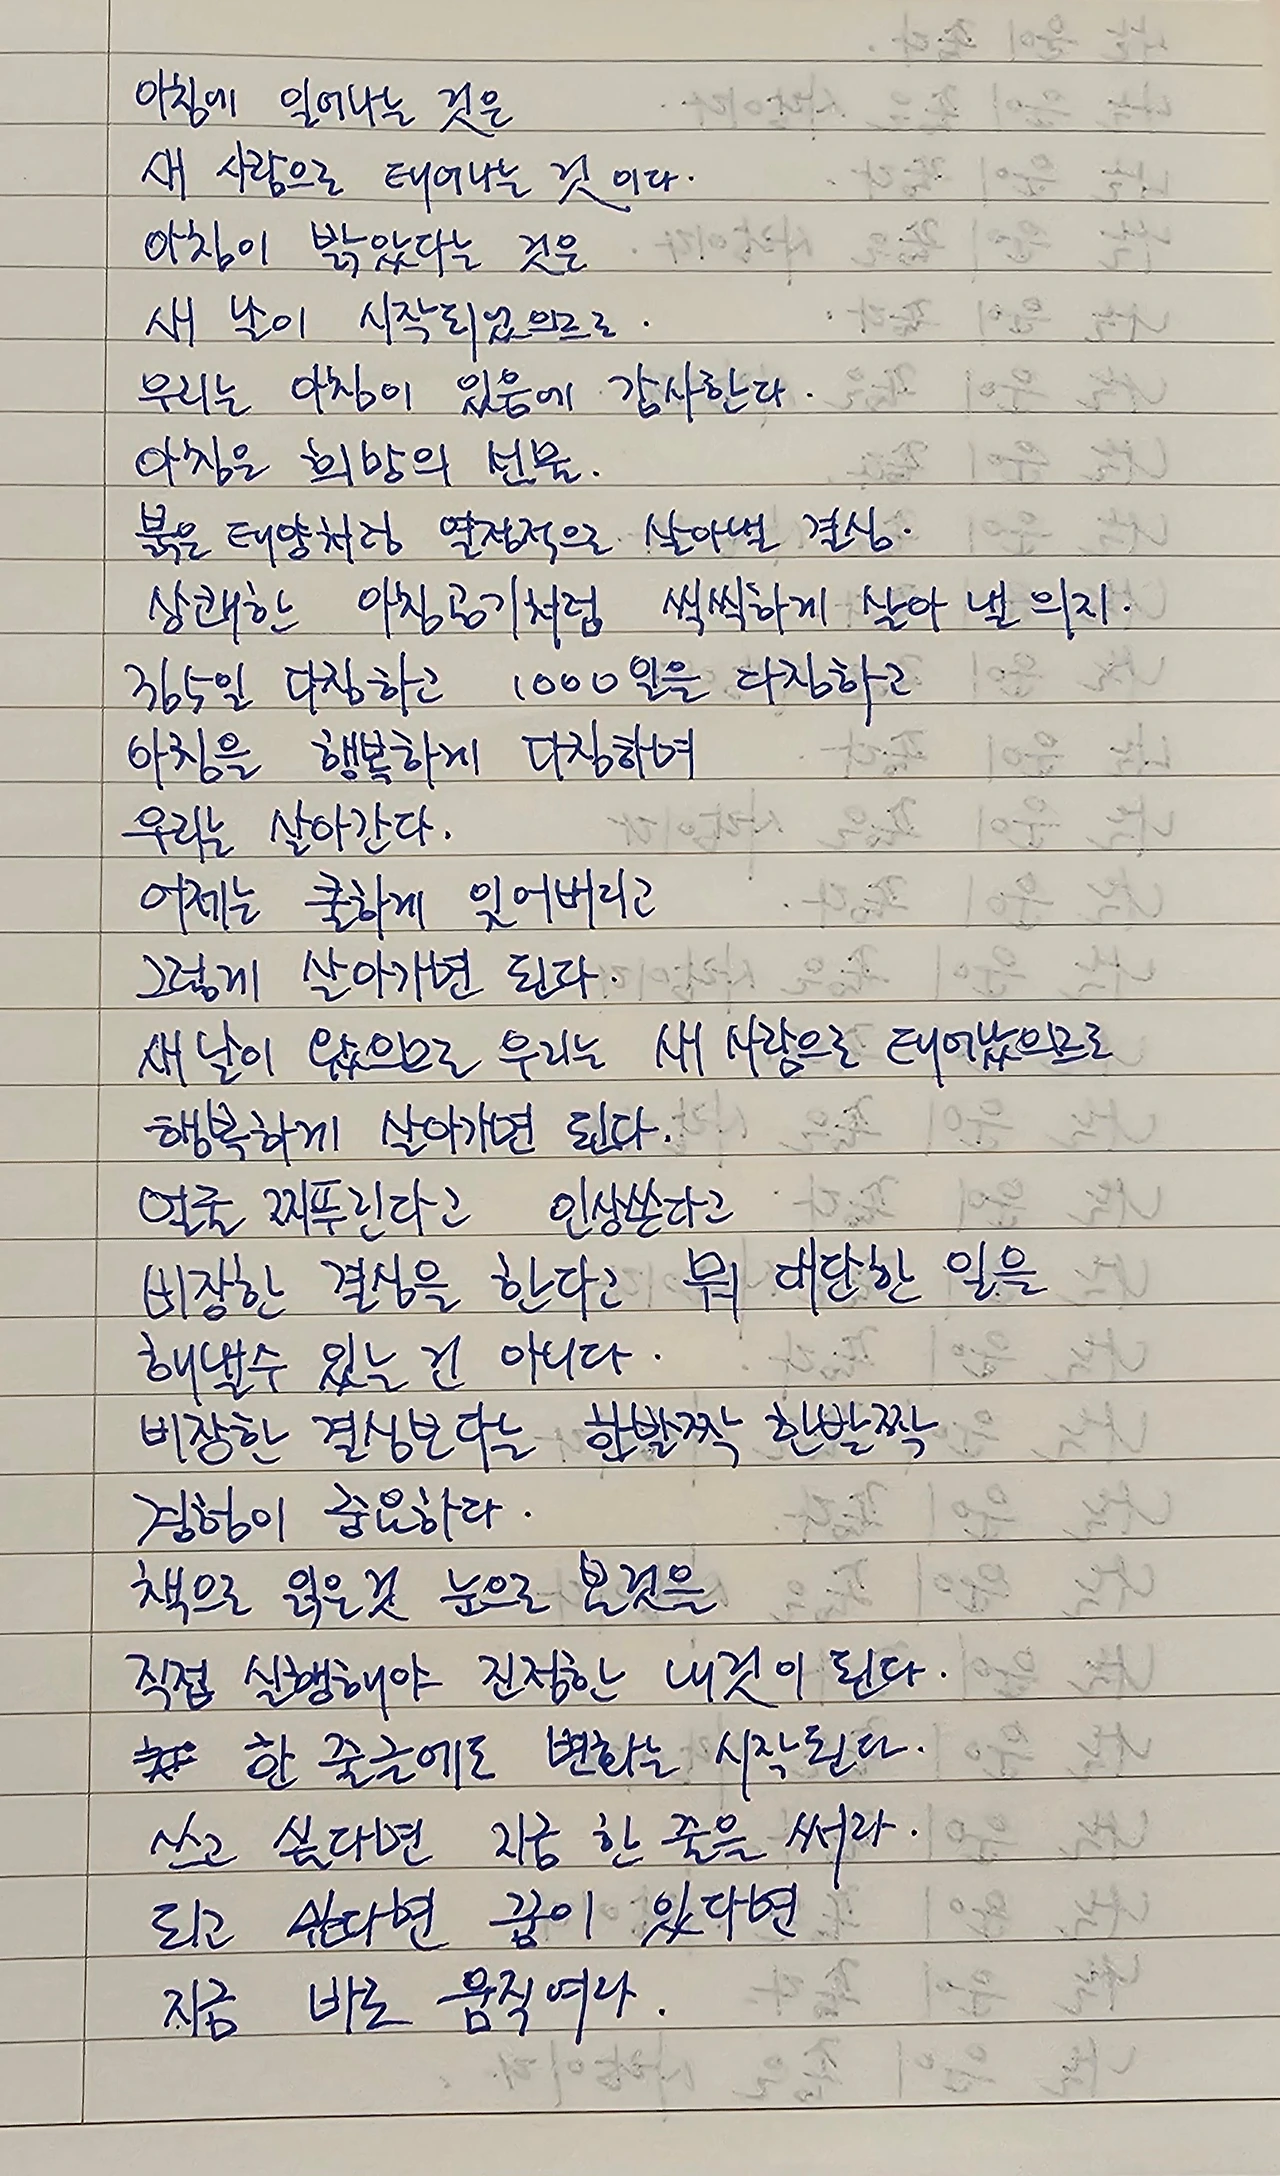 아침에 일어나는 것은
새 사람으로 태어나는 것이다.
아침이 밝았다는 것은
새 날이 시작되었으므로.
우리는 아침이 있음에 감사한다.
아침은 희망의 선물.
붉은 태양처럼 열정적으로 살아낼 결심.
상쾌한 아침공기처럼 씩씩하게 살아 낼 의지.
365일 다짐하고 1000일을 다짐하고
아침을 행복하게 다짐하며
우리는 살아간다.
어제는 쿨하게 잊어버리고
그렇게 살아가면 된다.
새날이 왔으므로 우리는 새 사람으로 태어났으므로
행복하게 살아가면 된다.
얼굴 찌푸린다고 인상쓴다고
비장한 결심을 한다고 뭐 대단한 일을
해낼수 있는 건 아니다.
비장한 결심보다는 한발짝 한발짝
경험이 중요하다.
책으로 읽은것 눈으로 본것을
직접 실행해야 진정한 내것이 된다.
한 줄글에도 변화는 시작된다.
쓰고 싶다면 지금 한 줄을 써라.
되고 싶다면 꿈이 있다면
지금 바로 움직여라.